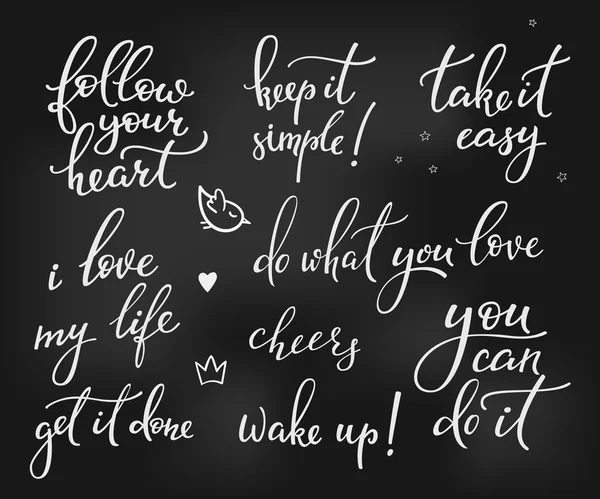 follow
your
heart
keep it
simple!
take it
easy
i love
my life
do what you love
cheers
you
can
do it
get it done
wake up!